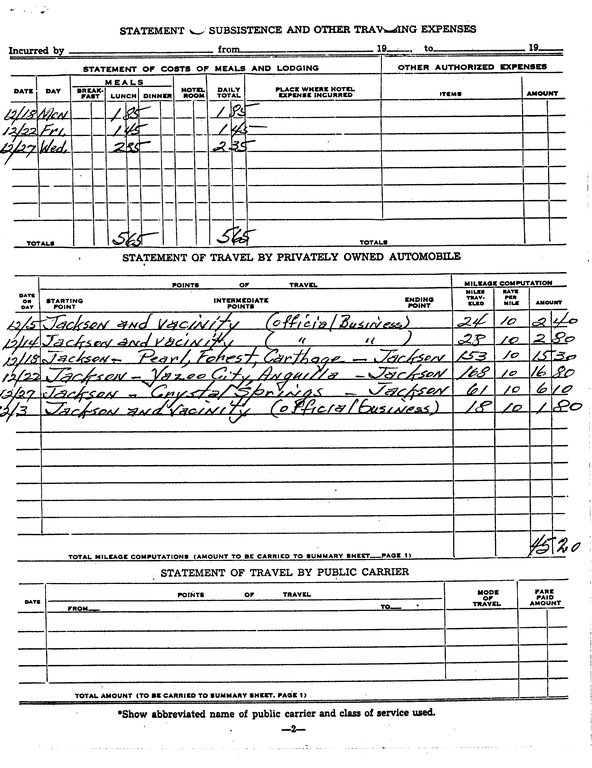 STATEMENT SUBSISTENCE AND OTHER TRAVELING EXPENSES
Incurred by from 19 , to 19
STATEMENT OF COSTS OF MEALS AND LODGING OTHER AUTHORIZED EXPENSES
MEALS
DATE DAY BREAK-FAST LUNCH DINNER HOTEL ROOM DAILY TOTAL PLACE WHERE HOTEL EXPENSE INCURRED ITEMS AMOUNT
12/18 Mon 1 85 1 85
12/22 Fri. 1 45 1 45
12/27 Wed. 2 35 2 35
TOTALS 5 65 5 65 TOTALS
STATEMENT OF TRAVEL BY PRIVATELY OWNED AUTOMOBILE
POINTS OF TRAVEL MILEAGE COMPUTATION
DATE OR DAY STARTING POINT INTERMEDIATE POINTS ENDING POINT MILES TRAV-ELED RATE PER MILE AMOUNT
12/5 Jackson and vacinity (official Business) 24 10 2 40
12/14 Jackson and vacinity ( " " ) 28 10 2 80
12/18 Jackson - Pearl, Forest Carthage - Jackson 153 10 15 30
12/22 Jackson - Yazoo City, Anguilla - Jackson 168 10 16 80
12/27 Jackson - Crystal Springs - Jackson 61 10 6 10
12/3 Jackson and vacinity (official business) 18 10 1 80
TOTAL MILEAGE COMPUTATIONS (AMOUNT TO BE CARRIED TO SUMMARY SHEET PAGE 1) 45 20
STATEMENT OF TRAVEL BY PUBLIC CARRIER
DATE POINTS OF TRAVEL MODE OF TRAVEL FARE PAID AMOUNT
FROM TO
TOTAL AMOUNT (TO BE CARRIED TO SUMMARY SHEET, PAGE 1)
*Show abbreviated name of public carrier and class of service used.
—2—